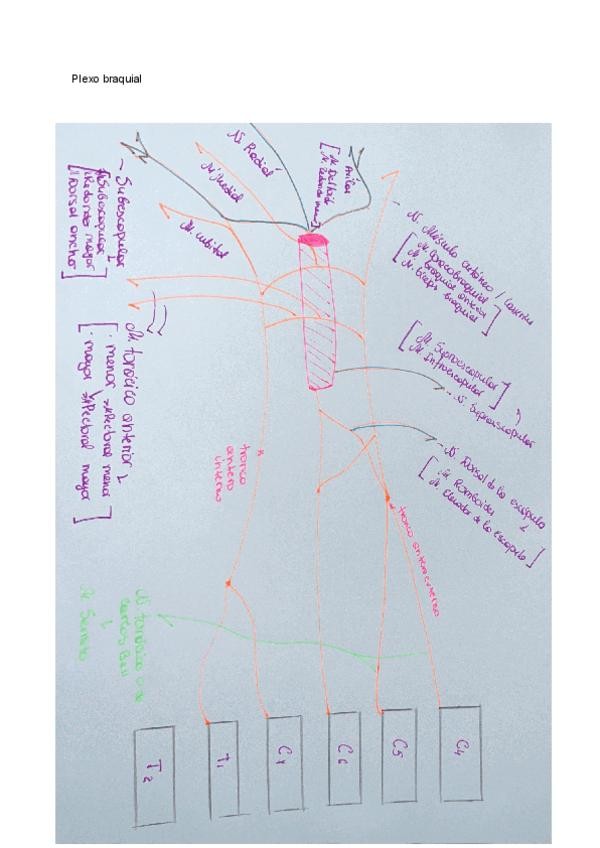 Plexo braquial
N. Radial
N. Medial
N. cubital
Axilar
[M. Deltoide
M. Redondo menor]
- N. Músculo cutáneo /
[M. Coracobraquial
M. braquial anterior
M. biceps braquial]
[M. Supraescapular
M. Infraescapular]
- N. Supraescapular
- N. Dorsal de la escápula
[M. Romboides
M. Elevador de la escápula]
- Subescapular
[M. Subescapular
M Redondo mayor
M Dorsal ancho]
N. torácico anterior
[· menor → M Pectoral menor
· mayor → M Pectoral mayor]
tronco
antero
interno
tronco anteroexterno
N torácico
Bell
M. Serrato
C4
C5
C6
C7
T1
T2